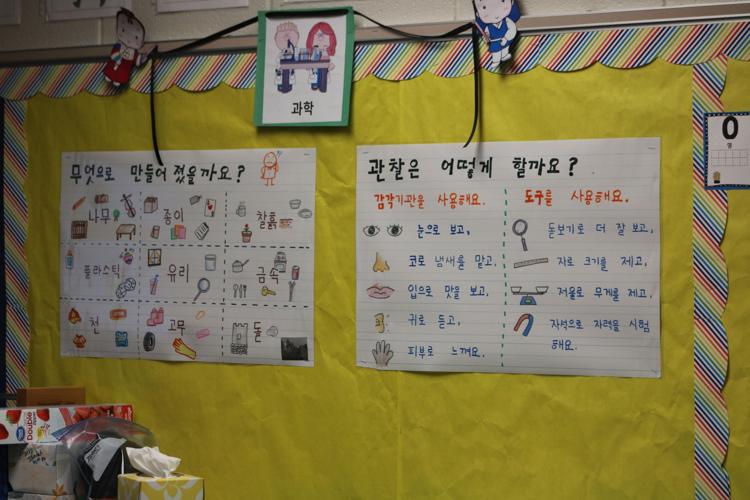 과학
무엇으로 만들어 졌을까요?
나무
종이
찰흙
플라스틱
유리
금속
천
고무
돌
관찰은 어떻게 할까요?
감각기관을 사용해요.
눈으로 보고,
코로 냄새를 맡고.
입으로 맛을 보고,
귀로 듣고,
피부로 느껴요.
도구를 사용해요.
돋보기로 더 잘 보고,
자로 크기를 재고,
저울로 무게를 재고,
자석으로 자력을 시험
해요.
0
영
Double